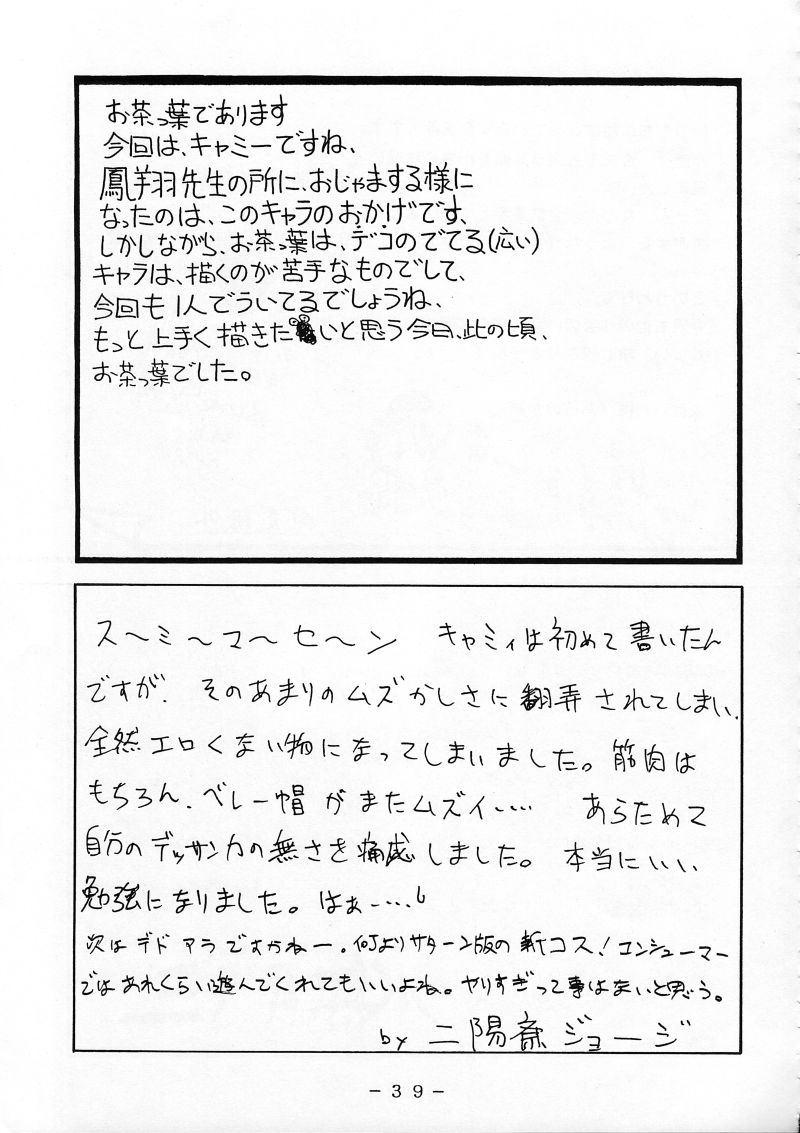 お茶っ葉であります
今回は、キャミーですね、
鳳翔羽先生の所に、おじゃまする様に
なったのは、このキャラのおかげです、
しかしながら、お茶っ葉は、デコのでてる(広い)
キャラは、描くのが苦手なものでして、
今回も1人でういてるでしょうね、
もっと上手く描きたいと思う今日、此の頃、
お茶っ葉でした。
ス〜ミ〜マ〜セ〜ン キャミィは初めて書いたん
ですが、そのあまりのムズかしさに翻弄されてしまい、
全然エロくない物になってしまいました。筋肉は
もちろん、ベレー帽がまたムズイ…… あらためて
自分のデッサン力の無さを痛感しました。本当にいい
勉強になりました。はぁ……
次はデドアラですかねー。何よりサターン版の新コス！コンシューマー
ではあれくらい遊んでくれてもいいよね。ヤリすぎって事はないと思う。
by 二陽斎ジョージ
-39-